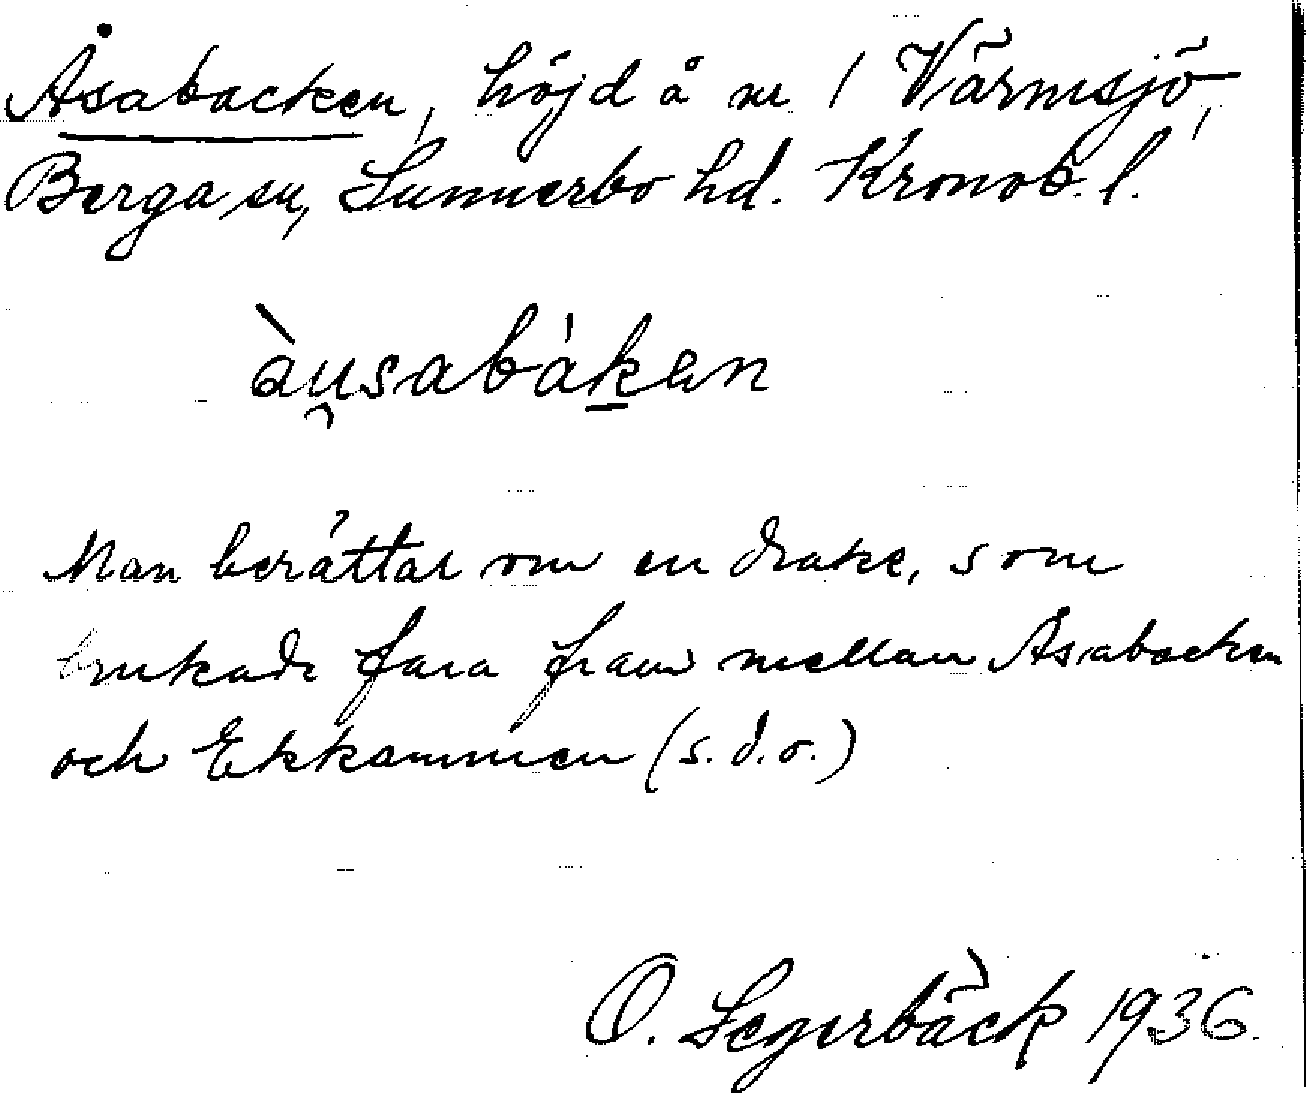 Åsabacken, höjd å nr 1 Värmsjö,
Berga sn, Sunnerbo hd. Kronob. l.
àu̯sabáken
Man berättar om en drake, som
brukade fara fram mellan Åsabacken
och Ekkammen (s.d.o.)
O. Segerbäck 1936.